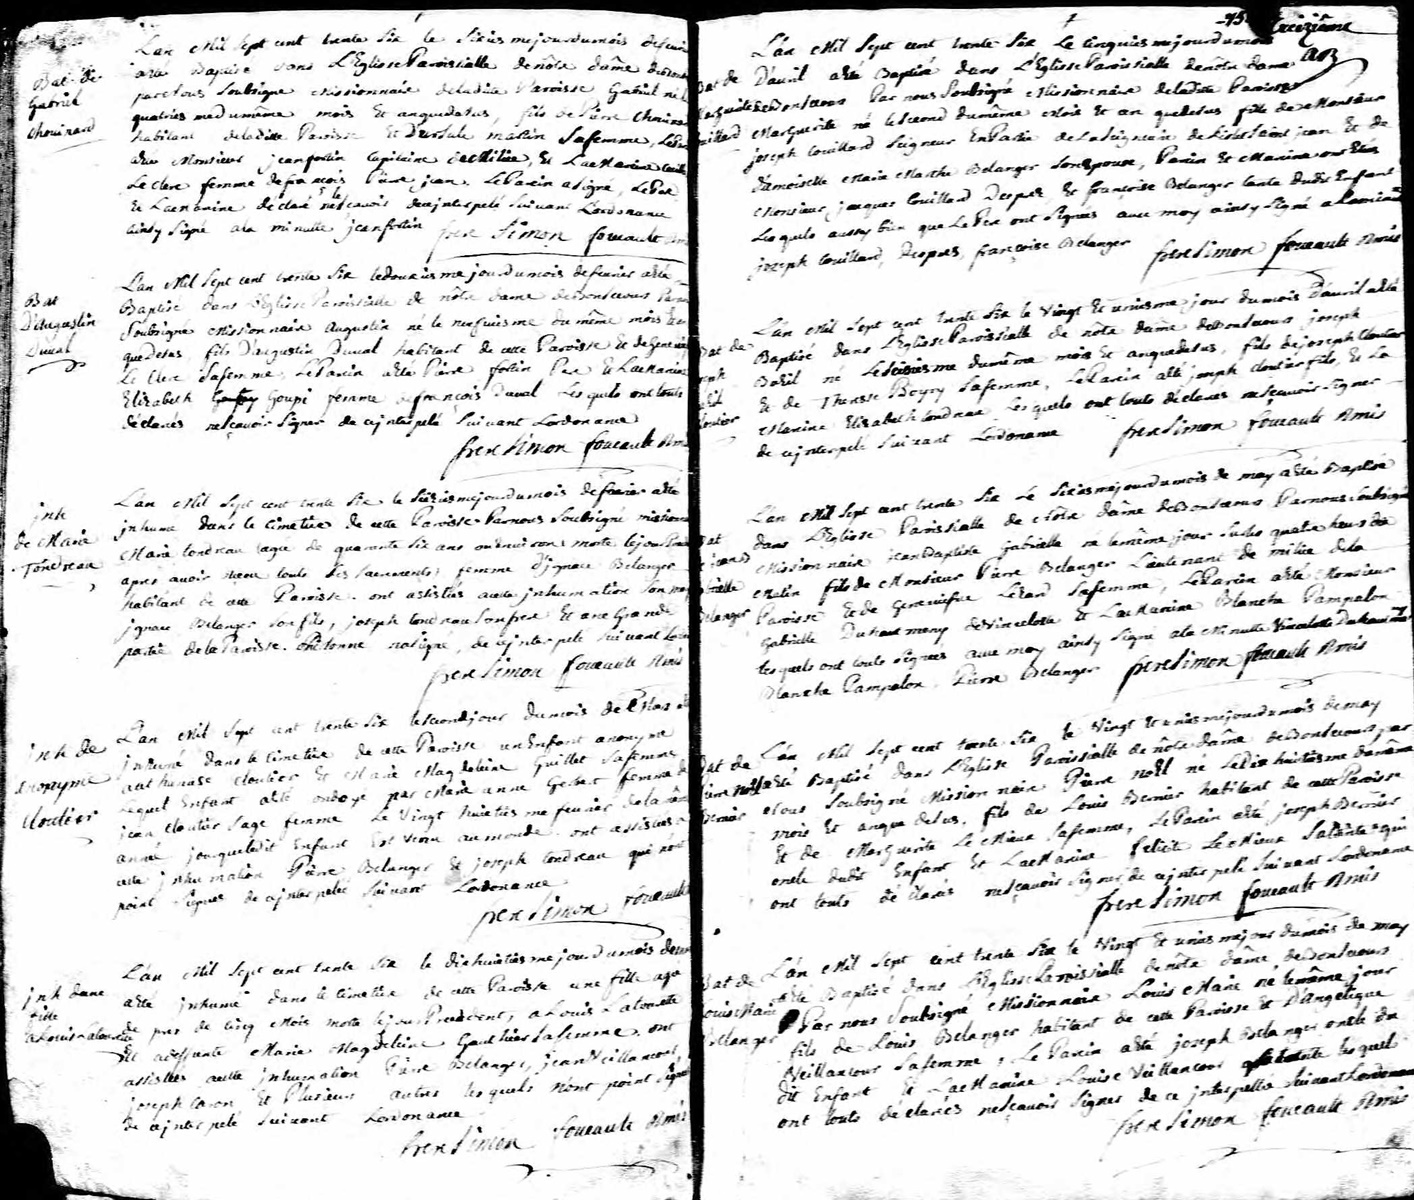 Bat de
Gabriel
chouinard
L'an Mil Sept cent trente Six le Sixiesme jour du mois de fevrier
a esté Baptisé dans L'Eglise Paroissialle de nôtre dame de Bonsecours
par Nous Soubsigné Missionnaire de la ditte Paroisse Gabriel né le
quatriesme du même mois et an que desus, fils de Pierre chouinard
habitant de la ditte Paroisse et D'ursule martin Sa femme, Le Parin
a esté Monsieur jean fortin Capitaine de Milice, et La Marine
Le Clerc femme de françois Pierre jean. Le Parin a signé, Le Pere
et La Marine declaré ne sçavoir de ce jnterpelé suivant L'ordonance
ainsy Signé a la minutte jean fortin frere Simon foucault Amis
Bat
D'Augustin
Duval
L'an Mil Sept cent trente Six le douziesme jour du mois de fevrier a esté
Baptisé dans L'Eglise Paroissialle de nôtre dame de Bonsecours Par nous
Soubsigné Missionnaire Augustin né le neufuiesme du même mois et an
que desus, fils D'augustin Duval habitant de cette Paroisse et de Genevieve
Le Clerc Sa femme, Le Parin a esté Pierre fortin Per et La Marine
Elizabeth Goupi femme de françois Duval Lesquels ont touts
déclarés ne sçavoir Signer de ce jnterpelé Suivant Lordonance
frere Simon foucault Amis
jnh
de Marie
Tondreau
L'an Mil Sept cent trente Six le Seiziesme jour du mois de fevrier a esté
jnhumé dans le Cimetiere de cette Paroisse Par nous Soubsigné missionnaire
Marie tondreau agée de quarante Six ans ou environ morte le jour
apres avoir receu touts les Sacrements, femme d'jgnace Belanger
habitant de cette Paroisse. ont assistés a cette jnhumation Son mary
jgnace Belanger Son fils, joseph tondreau Son frere et une Grande
partie de la Paroisse. Personne na signé, de ce jnterpelé suivant Lordonance
frere Simon foucault Amis
jnh de
anonyme
cloutier
L'an Mil Sept cent trente Six le Second jour du mois de Mars a esté
jnhumé dans le Cimetiere de cette Paroisse un Enfant anonyme
athanase cloutier et Marie Magdeleine Guillet Sa femme
Lequel Enfant a esté ondoyé par Marie anne Gebert femme de
jean cloutier Sage femme le Vingt huitiesme fevrier de la même
année jour que ledit Enfant Est venu au monde. ont assistés a
cette jnhumation Pierre Belanger et joseph tondreau qui n'ont
point Signer de ce jnterpelée Suivant Lordonance
frere Simon foucault
jnh dune
fille
a Louis Latourette
L'an Mil Sept cent trente Six le dixhuitiesme jour du mois de
a esté jnhumé dans le Cimetiere de cette Paroisse une fille agé
de pres de Cinq Mois morte le jour Precedent, a Louis Latourette
et a deffunte Marie Magdeleine Gaulthier Sa femme. ont
assistées a cette jnhumation Pierre Belanger, jean Veillancourt,
joseph Caron et Plusieurs autres lesquels n'ont point Signé
de ce jnterpelé suivant Lordonance
frere Simon foucault Amis
75 treiziéme
L'an Mil Sept cent trente Six Le Cinquiesme jour du mois
D'avril a esté Baptisé dans L'Eglise Paroissialle de nôtre dame
de Bonsecours Par nous Soubsigné Missionaire de la ditte Paroisse
Marguerite né le second du même Mois et an que desus fille de Monsieur
joseph Couillard Seigneur En Partie de La Seigneurie de Lislet Saint jean et de
Damoiselle Marie Marthe Belanger Son Epouse, Parin et Marine ont Etés
Monsieur jacques Couillard Després et françoise Belanger tante dudit Enfant
Lesquels aussy bien que Le Pere ont Signées avec moy ainsy Signé a La minutte
joseph Couillard, Després, françoise Belanger frere Simon foucault Amis
Bat de
joseph
Basil
cloutier
L'an Mil Sept cent trente Six le Vingt et uniesme jour du mois D'avril a esté
Baptisé dans L'Eglise Paroissialle de nôtre dame de Bonsecours joseph
Basil né Le Seiziesme du même mois et an que desus, fils de joseph Cloutier
et de Therese Sa femme, Le Parin a esté joseph cloutier fils, et La
Marine Elizabeth tondreau Lesquels ont touts déclarés ne sçavoir Signer
de ce jnterpelé Suivant Lordonance frere Simon foucault Amis
Belanger
L'an Mil Sept cent trente Six Le Sixiesme jour du mois de may a esté Baptisé
dans L'Eglise Paroissialle de Nôtre dâme de Bonsecours Par nous Soubsigné
Missionnaire jean Baptiste Gabrielle né le même jour Sur les quatre heures du
Matin fils de Monsieur Pierre Belanger Lieutenant de milice de la
Paroisse et de Genevieve Lizard Sa femme, Le Parin a esté Monsieur
Gabrielle Duhaut meny de Vincelotte et La Marine Blanche Pampalon
Lesquels ont touts Signées avec moy ainsy Signé a la Minutte Vincelotte Duhaut
Blanche Pampalon, Pierre Belanger frere Simon foucault Amis
Bat de
Pierre Noel
Bernier
L'an Mil Sept cent trente Six le Vingt et uniesme jour du mois de may
a esté Baptisé dans L'Eglise Paroissialle de nôtre dame de Bonsecours par
Nous Soubsigné Missionnaire Pierre Noël né Le Dixhuitiesme du même
mois et an que desus, fils de Louis Bernier habitant de cette Paroisse
et de Marguerite Le Mieux Sa femme, Le Parin a esté joseph Bernier
oncle dudit Enfant et La Marine felicité Le Mieux Sa tante qui
ont touts déclarés ne sçavoir Signer de ce jnterpelé Suivant Lordonance
frere Simon foucault Amis
Bat de
Louis Marie
Bellanger
L'an Mil Sept cent trente Six le Vingt et uniesme jour du mois de may
a esté Baptisé dans L'Eglise Paroissialle de nôtre dâme de Bonsecours
Par nous Soubsigné Missionnaire Louis Marie né le même jour
fils de Louis Belanger habitant de cette Paroisse et D'angelique
Veillancour Sa femme, Le Parin a esté joseph Belanger oncle du
dit Enfant et La Marine Louise Veillancour lesquels
ont touts declarés ne sçavoir Signer de ce jnterpellés Suivant Lordonance
frere Simon foucault Amis